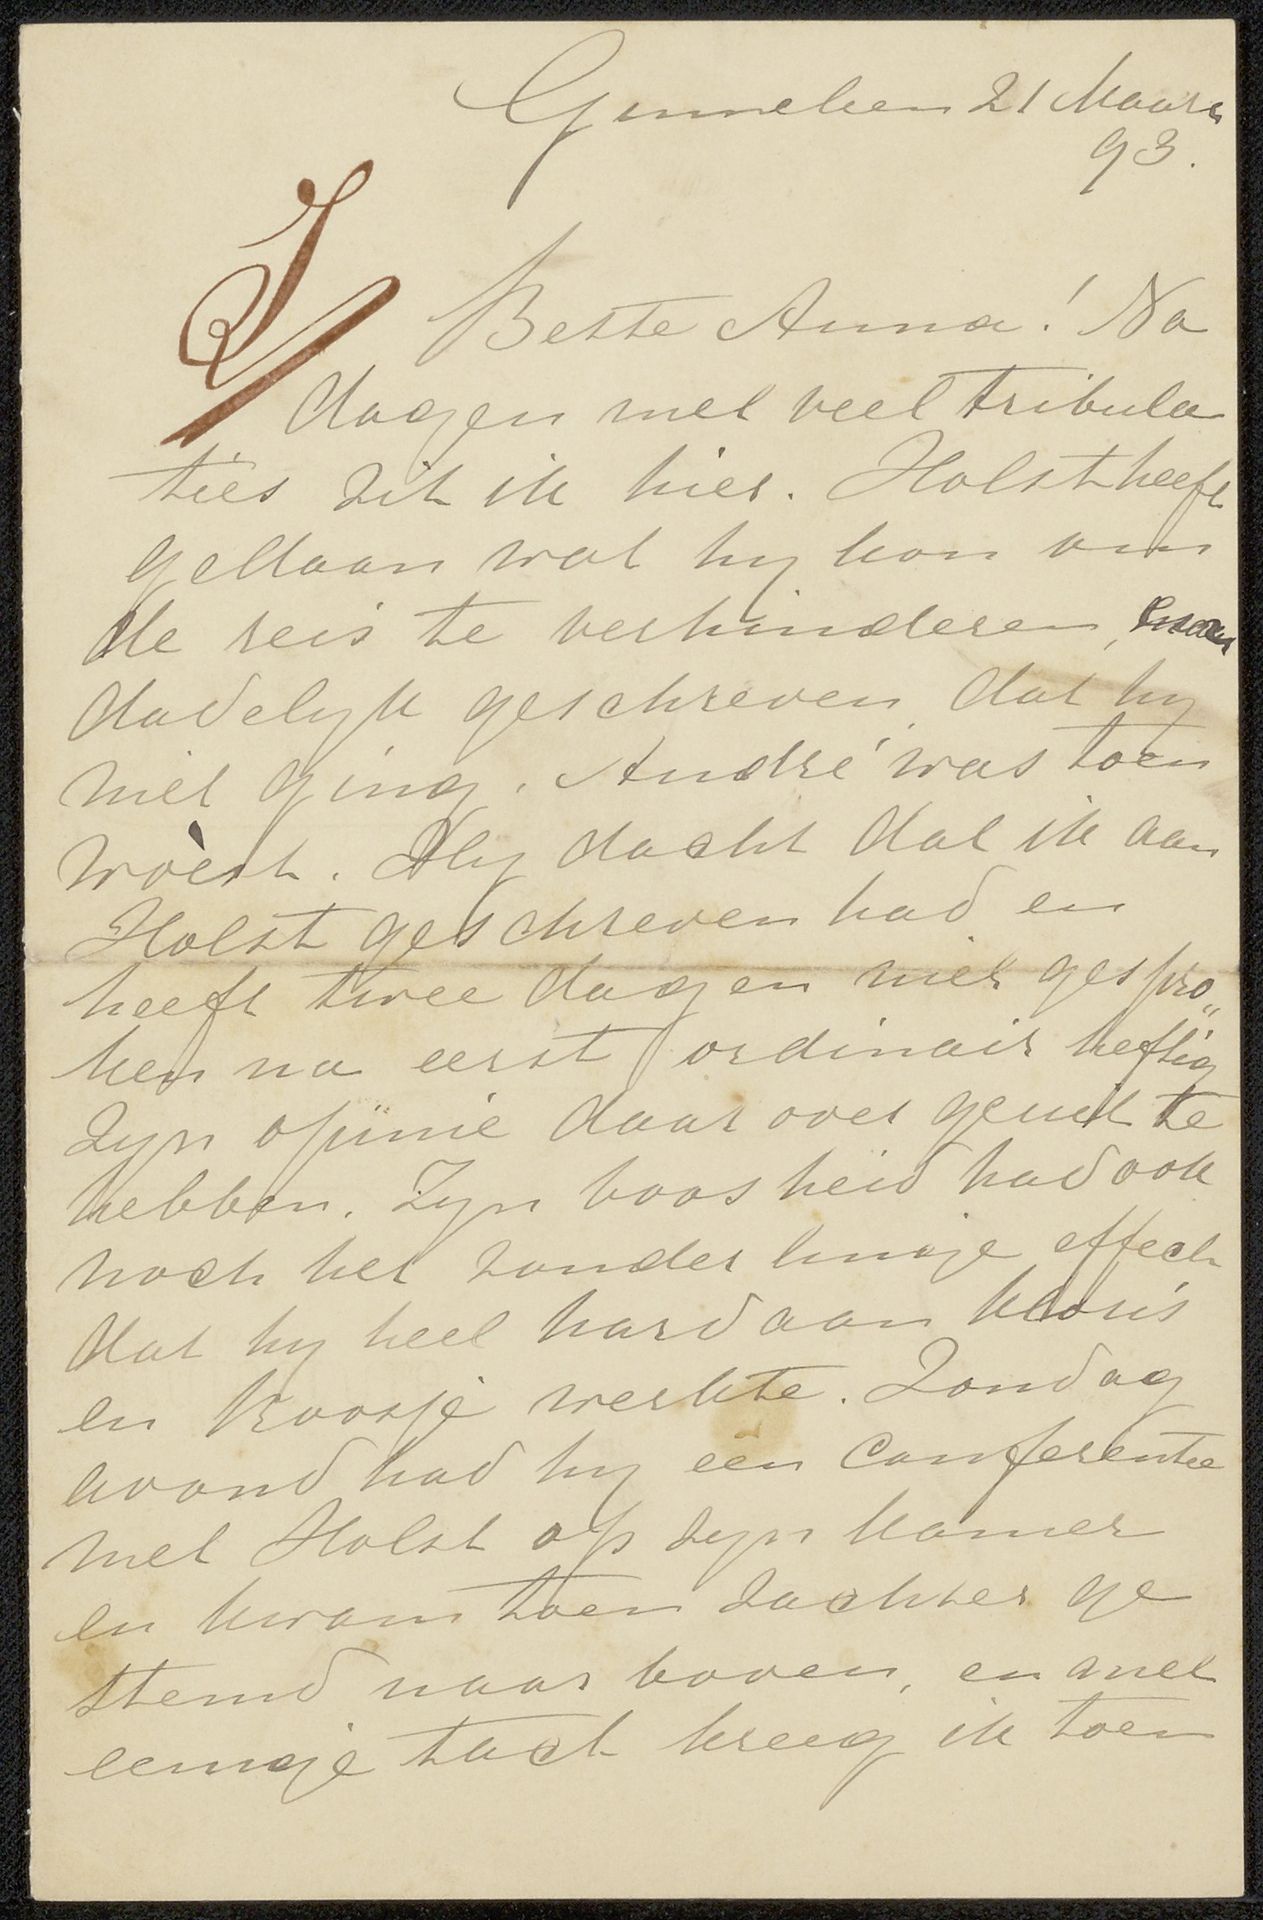 Ginneken 21 Maart
93.
Beste Anna! Na
dagen met veel tribula
ties zit ik hier. Holst heeft
gedaan wat hy kon om
de reis te verhinderen,
dadelyk geschreven dat hy
niet ging. André was toen
woest. Hy dacht dat ik aan
Holst geschreven had en
heeft twee dagen niet gespro„
ken na eerst ordinair heftig
zyn opinie daar over geuit te
hebben. Zyn boosheid had ook
noch het zonderlinge effect
dat hy heel hard aan Kloris
en Roosje werkte. Zondag
avond had hy een conferentie
met Holst op zyn kamer
en kwam toen zachter ge
stemd naar boven, en met
eenige tact kreeg ik toen